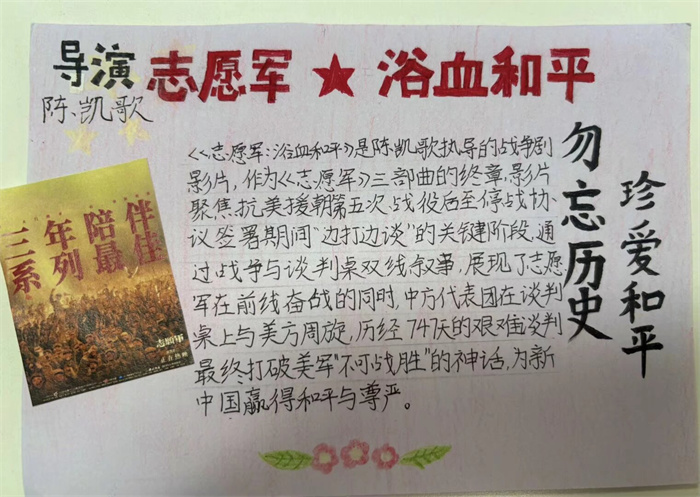 导演 志愿军★浴血和平
陈凯歌
《志愿军:浴血和平》是陈凯歌执导的战争剧
影片，作为《志愿军》三部曲的终章，影片
聚焦抗美援朝第五次战役后至停战协
议签署期间“边打边谈”的关键阶段，通
过战争与谈判桌双线叙事，展现了志愿
军在前线奋战的同时，中方代表团在谈判
桌上与美方周旋，历经747天的艰难谈判
最终打破美军“不可战胜”的神话，为新
中国赢得和平与尊严。
勿忘历史
珍爱和平
三年陪伴
系列最佳
志愿军
正在热映